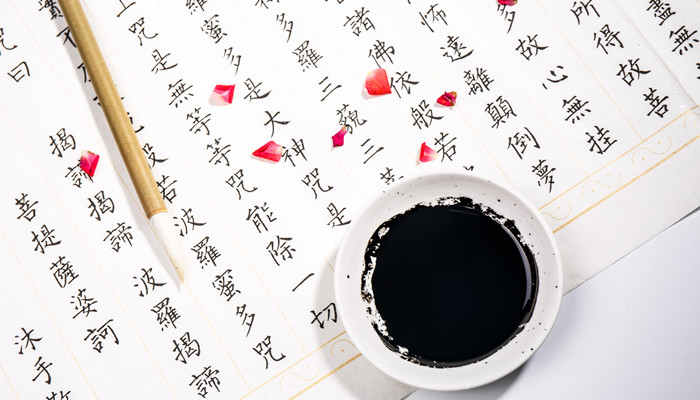 盡無
所得故菩
多故心無挂
怖遠離顛倒夢
諸佛依般若
多羅三藐三
蜜多是大神咒是
上咒是無等等咒能除一切
般若波羅蜜多咒
咒曰揭諦揭諦波羅揭諦
菩提薩婆訶
沐手